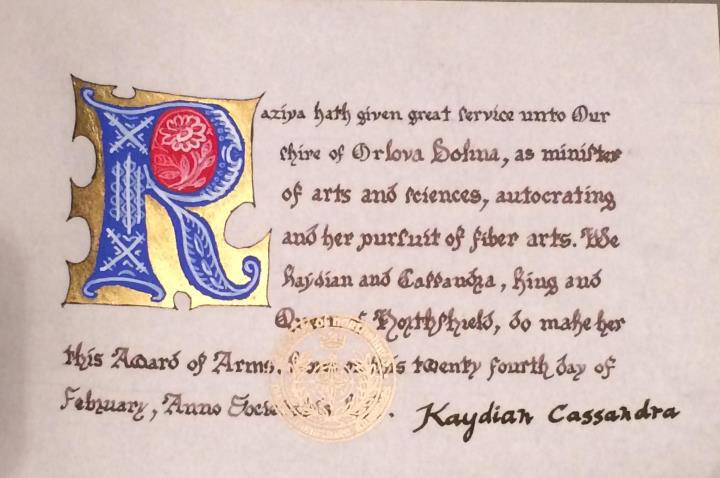 Raziya hath given great service unto Our
shire of Orlova Dolina, as minister
of arts and sciences, autocrating
and her pursuit of fiber arts. We
Kaydian and Cassandra, King and
of Northshield, do make her
this Award of Arms. this twenty fourth day of
February, Anno
Kaydian Cassandra